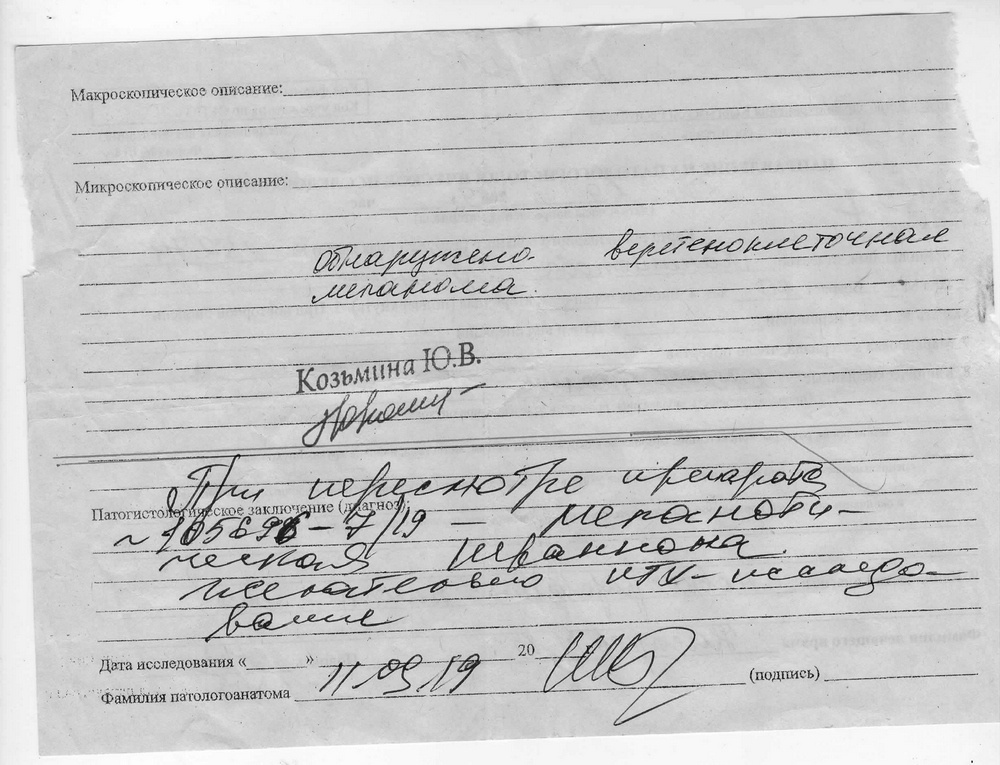 Макроскопическое описание:
Микроскопическое описание:
обнаружено веретеноклеточная
меланома.
Козьмина Ю.В.
При пересмотре препарата
Патогистологическое заключение (диагноз):
-7/19 – меланоти-
ческая шваннома.
желательно ИГХ-исследо-
вание
Дата исследования « » 20
11.09.19
Фамилия патологоанатома (подпись)